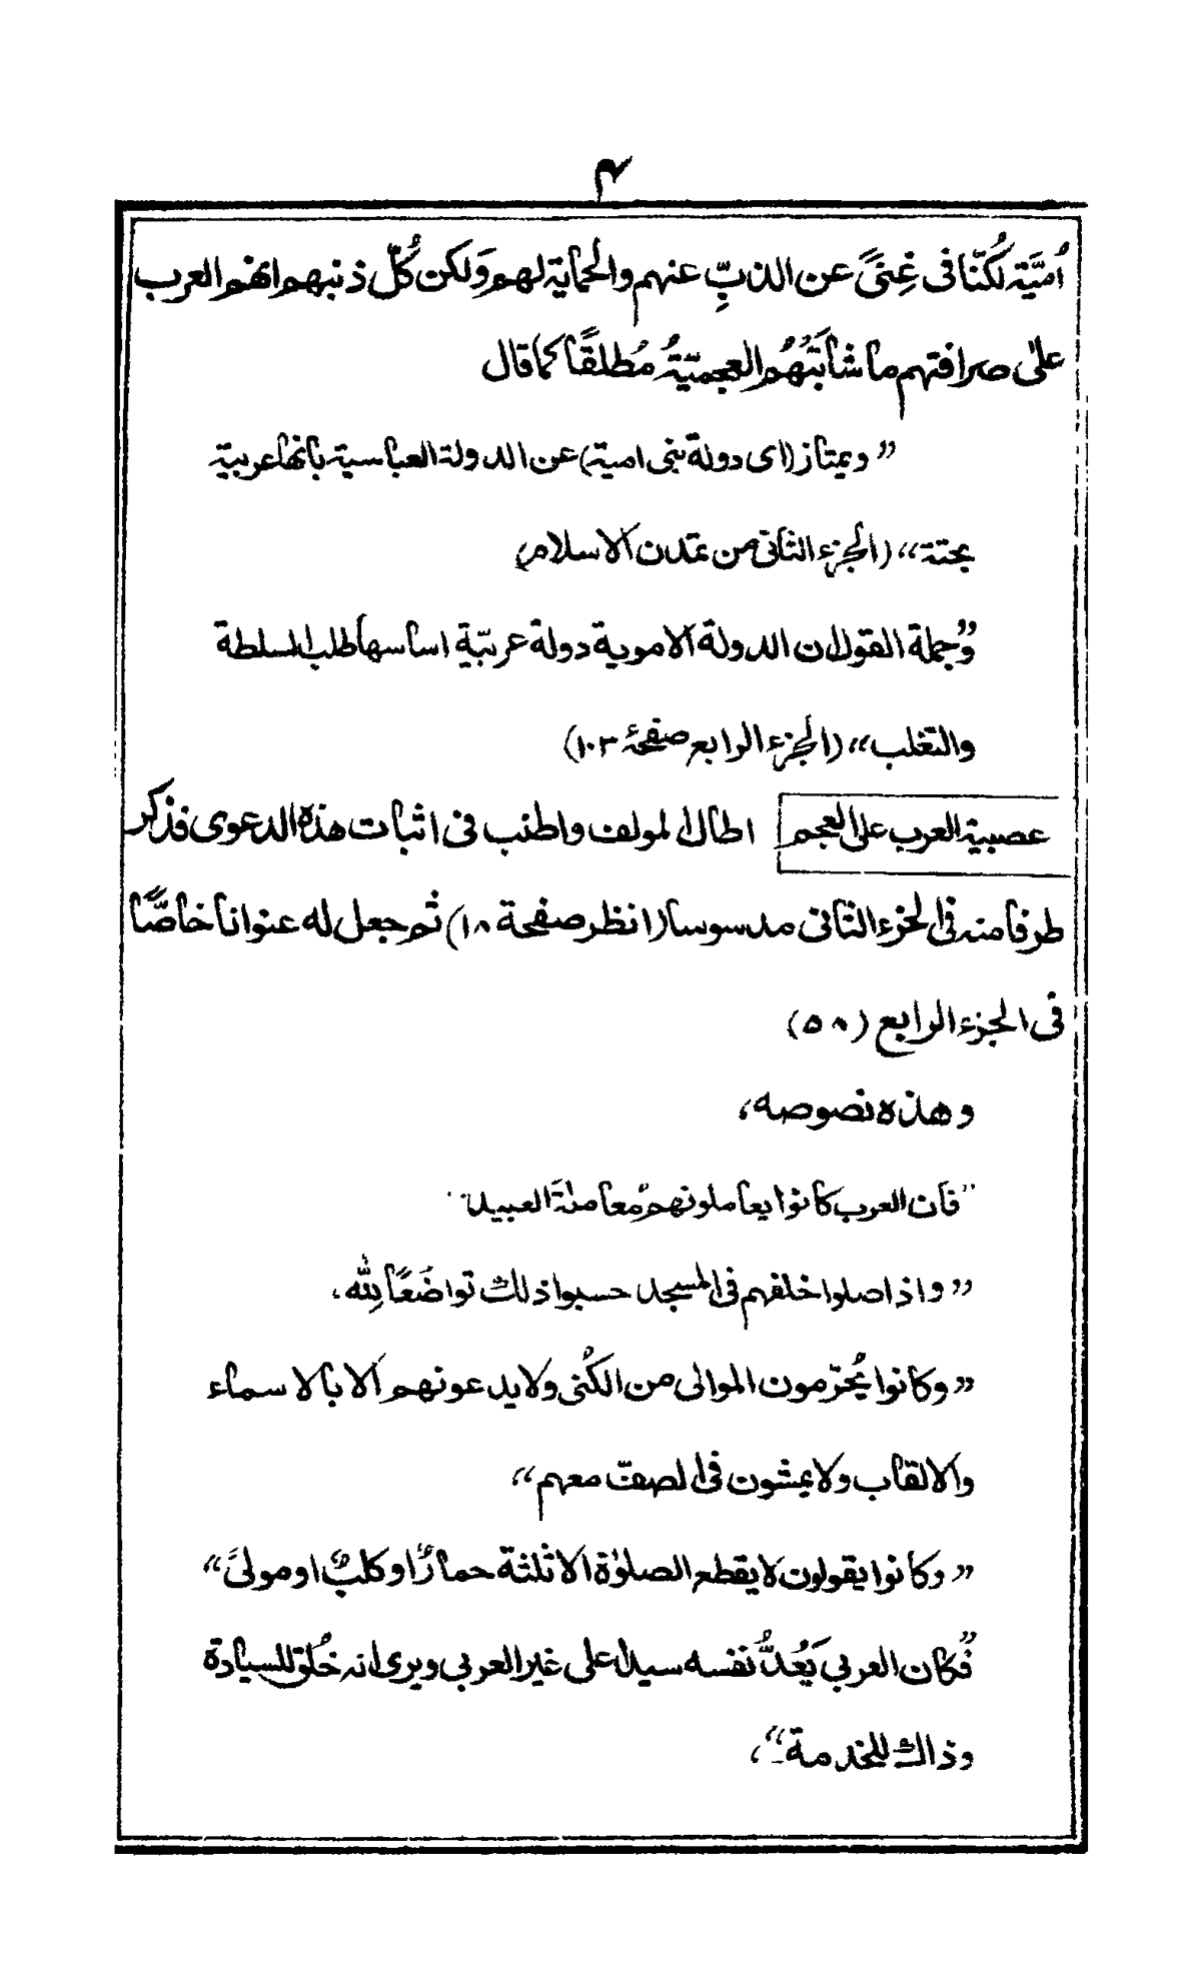 ۴
اُمیَّة لکُنّا فی غِنیً عن الذبِّ عنهم والحمایة لهم وَلکن کُلّ ذنبهم انهم العرب
علیٰ صرافتهم ما شابَتْهُم العجمیّةُ مُطلقًا کما قال
”ویمتاز (ای دولة بنی امیة) عن الدولة العباسیة بانها عربیة
بحتة“ (الجزء الثانی من تمدن الاسلام)
”وجملة القول ان الدولة الامویة دولة عربیّة اساسها طلب السلطة
والتغلب“ (الجزء الرابع صفحۀ ۱۰۳)
عصبیة العرب علی العجم اطال المولف واطنب فی اثبات هذه الدعوی فذکر
طرفا منه فی الجزء الثانی مدسوسا (انظر صفحة ۱۸) ثم جعل له عنوانا خاصًّا
فی الجزء الرابع (۵۸)
وهذه نصوصه،
”فان العرب کانوا یعاملونهم مُعاملةَ العبید“
”واذا صلوا خلفهم فی المسجد حسبوا ذلك تواضَعًا لِلّٰه،
”وکانوا یُحرّمون الموالی من الکُنی ولا یدعونهم الا بالاسماء
والالقاب ولا یمشون فی الصف معهم“
”وکانوا یقولون لا یقطع الصلوٰة الا ثلثة حمارٌ او کلبٌ او مولیً“
”فکان العربی یَعُدُّ نفسه سیدا علی غیر العربی ویری انه خُلق للسیادة
وذاك للخدمة“،